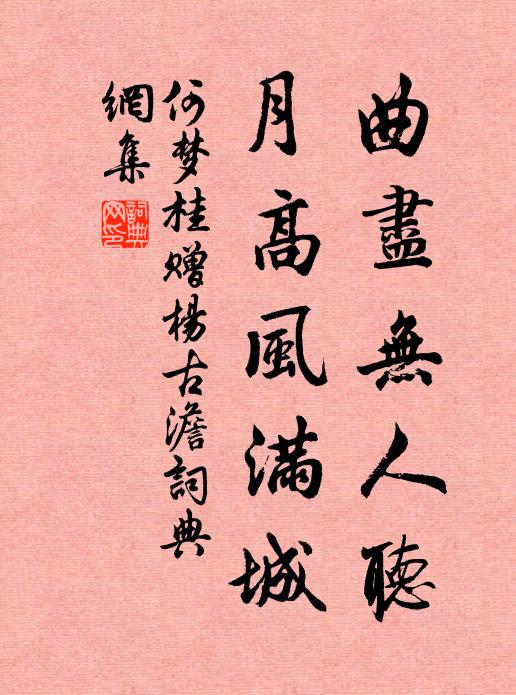 曲盡無人聽
月高風滿城
何梦桂赠楊古澹詞典
網集
詞典網印